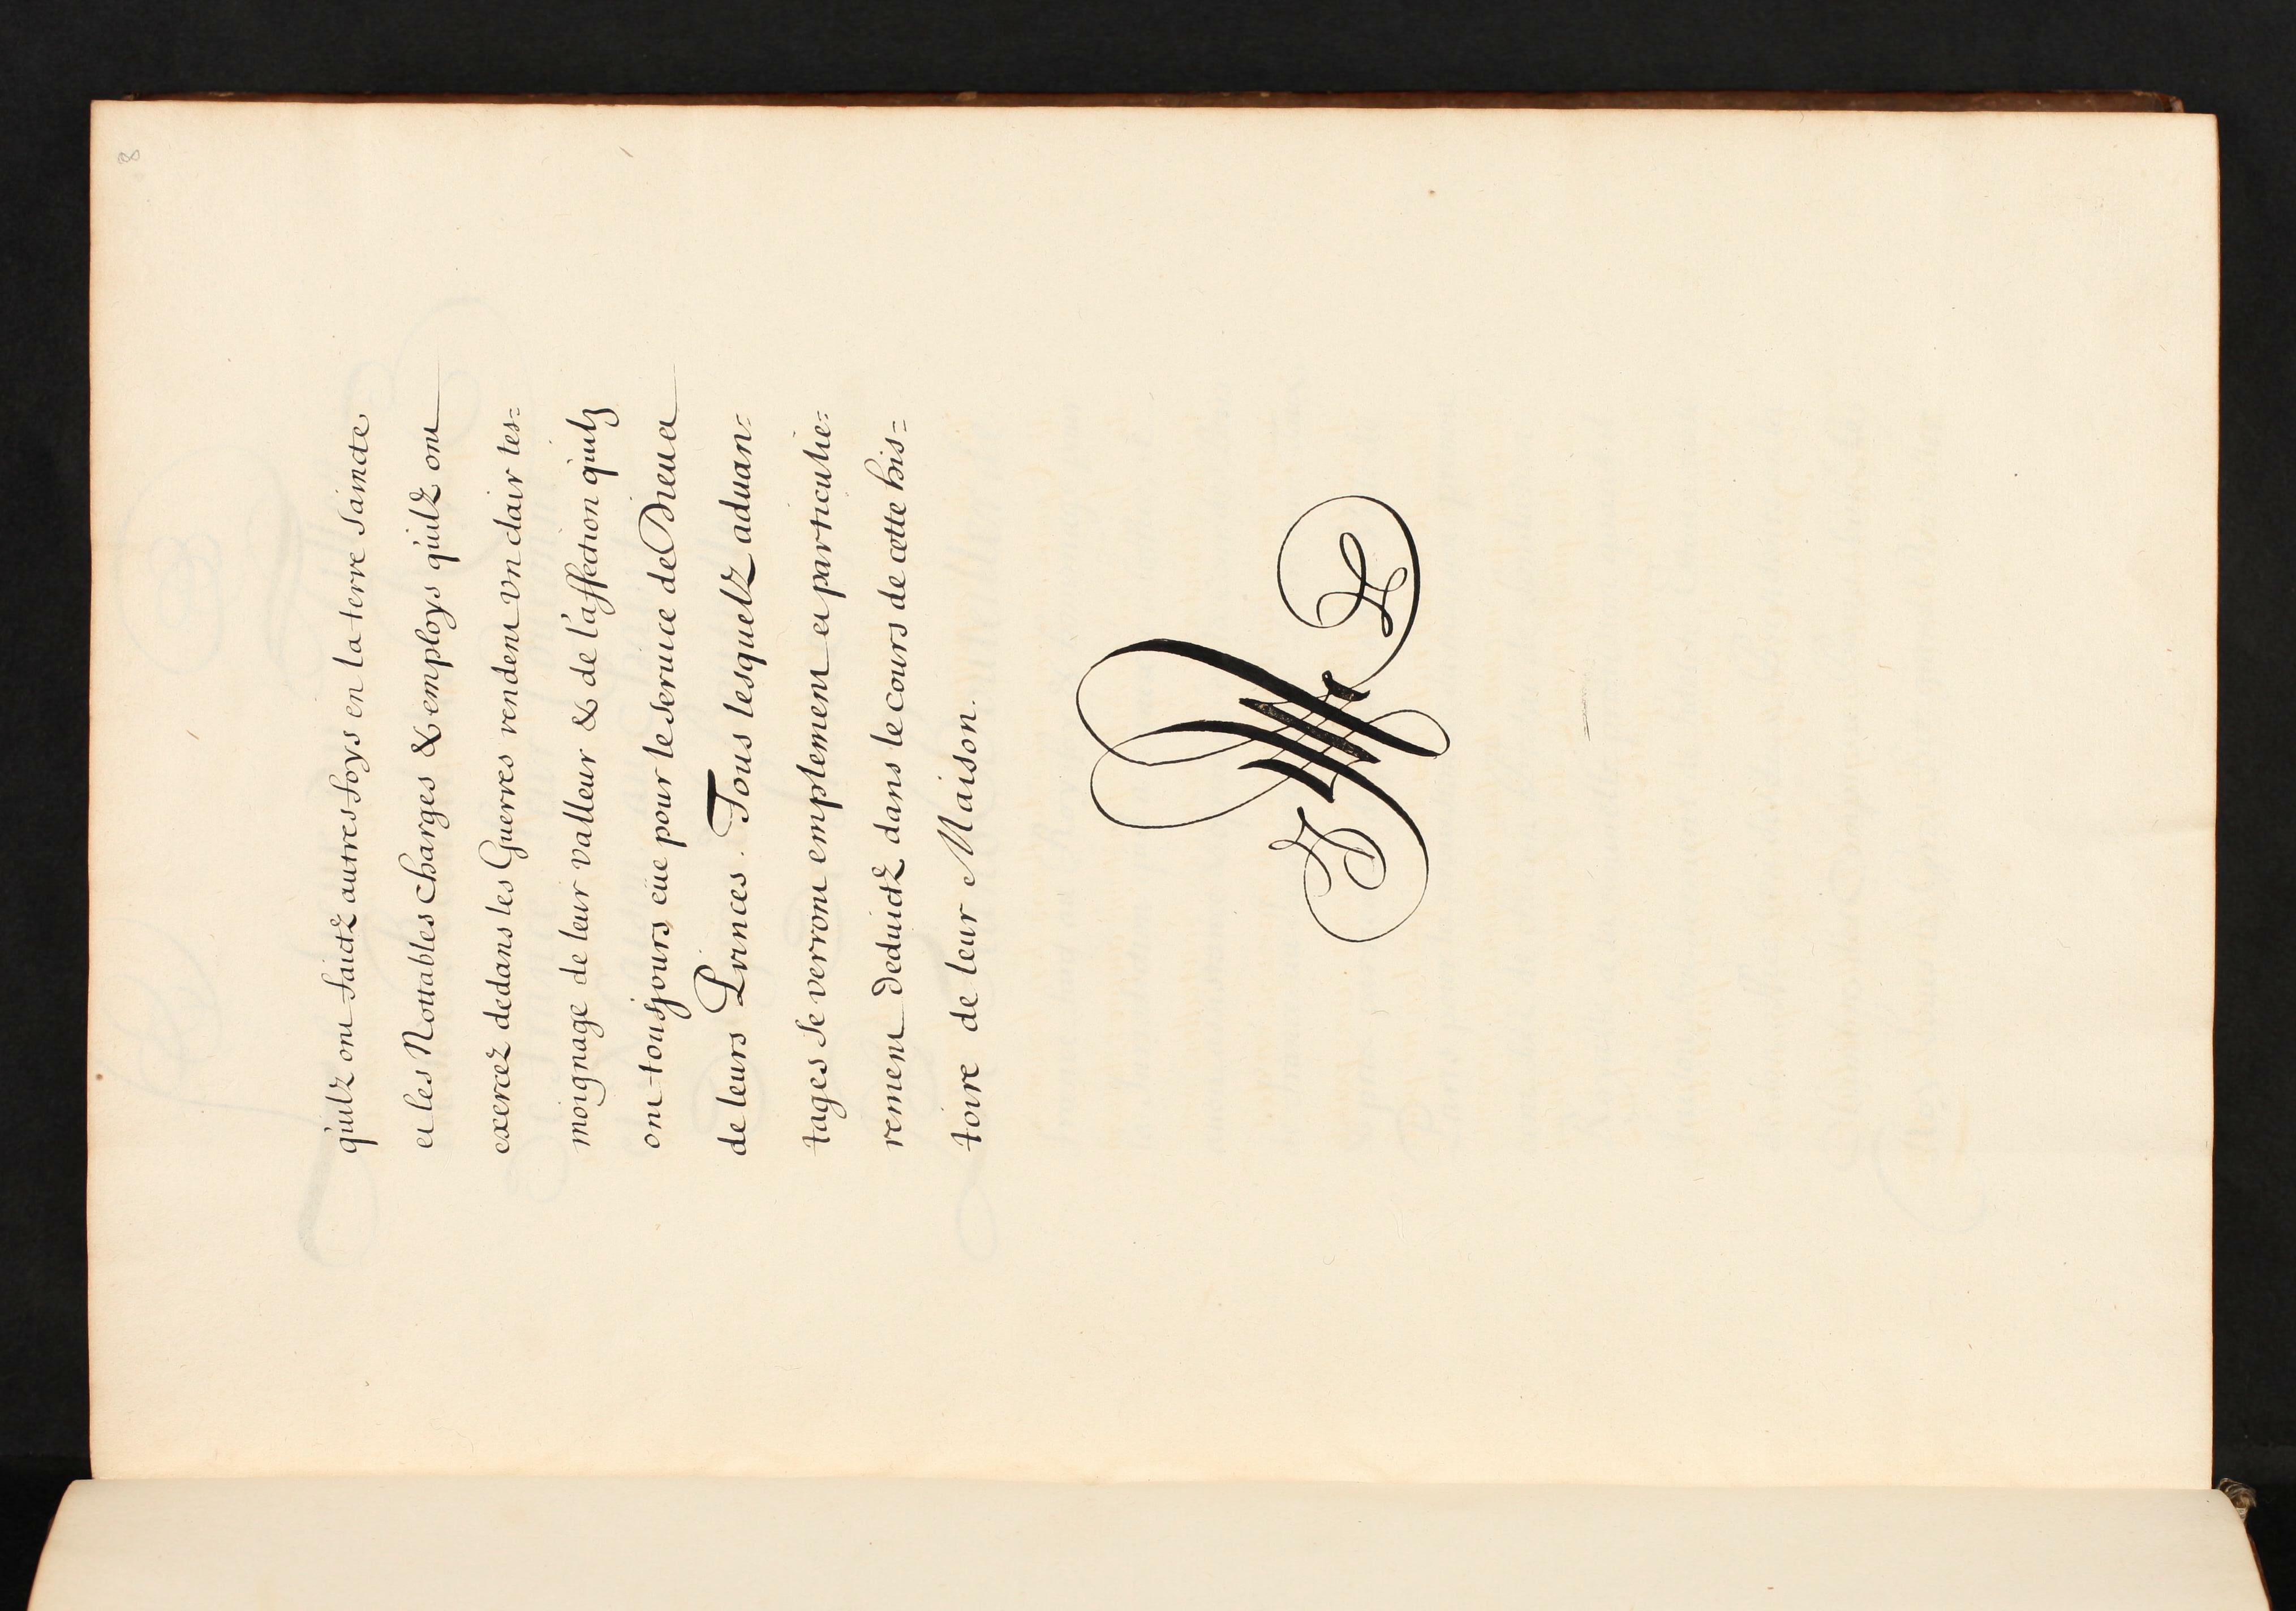 8
quilz ont faictz autresfoys en la terre saincte
et les Nottables charges & employs quilz ont
exercez dedans les Guerres rendent vn clair tes=
moignage de leur valleur & de l'affection quilz
ont tousjours eüe pour le seruice de Dieu et
de leurs Princes. Tous lesquelz aduan=
tages se verront emplement et particulie=
rement deduictz dans le cours de cette his=
toire de leur Maison.